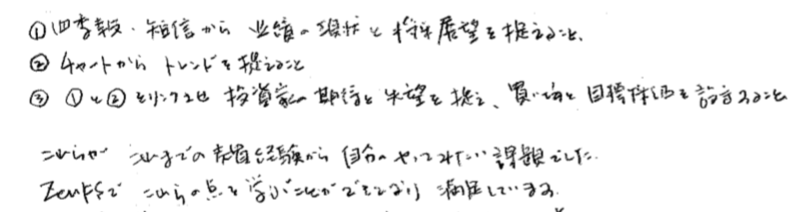 ①四季報・短信から 業績の現状と将来展望を捉えること、
② チャートから トレンドを捉えること
③ ①と②をリンクさせ 投資家の期待と失望を捉え、買い場と目標株価を設定すること
これらが これまでの売買経験から 自分の やってみたい 課題でした。
で これらの点を 学ぶことができており 満足しています。